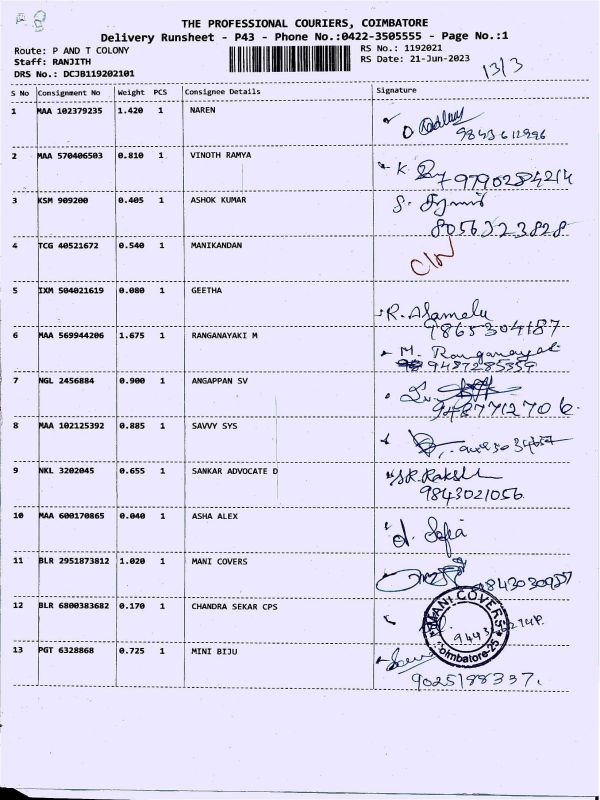 THE PROFESSIONAL COURIERS, COIMBATORE
Delivery Runsheet - P43 - Phone No.:0422-3505555 - Page No.:1
Route: P AND T COLONY
RS No.: 1192021
Staff: RANJITH
RS Date: 21-Jun-2023
DRS No.: DCJB119202101
13/3
S No Consignment No Weight PCS Consignee Details Signature
1 MAA 102379235 1.420 1 NAREN
9843611296
2 MAA 570406503 0.810 1 VINOTH RAMYA
9790284214
3 KSM 909200 0.405 1 ASHOK KUMAR
8056323828
4 TCG 40521672 0.540 1 MANIKANDAN
5 IXM 504021619 0.080 1 GEETHA R. Alamelu
9865304187
6 MAA 569944206 1.675 1 RANGANAYAKI M M. Ranganayaki
9487285359
7 NGL 2456884 0.900 1 ANGAPPAN SV
9487712706
8 MAA 102125392 0.885 1 SAVVY SYS
9 NKL 3202045 0.655 1 SANKAR ADVOCATE D
9843021056
10 MAA 600170865 0.040 1 ASHA ALEX d. Sofia
11 BLR 2951873812 1.020 1 MANI COVERS
MANI COVERS
12 BLR 6800383682 0.170 1 CHANDRA SEKAR CPS
Coimbatore-25
13 PGT 6328868 0.725 1 MINI BIJU
9025188337.